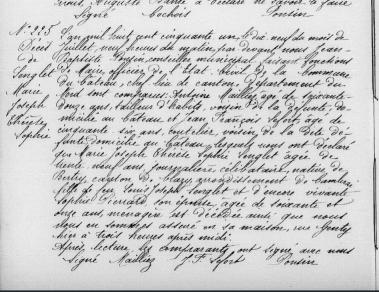 Signé Cochois Ponsin
N° 225
Décès
de
Senglet
Marie
Joseph
Thérèse
Sophie
L'an mil huit cent cinquante un le dix neuf du mois de
Juillet, neuf heures du matin, par devant nous Jean-
Baptiste Ponsin, conseiller municipal faisant fonctions
de Maire, officier de l'état-civil de la commune
du Cateau, chef lieu de canton, département du
Nord sont comparus Antoine Mailliez âgé de soixante-
douze ans, tailleur d'habits, voisin de la défunte, do-
micilié au Cateau et Jean François Lefort, âgé de
cinquante six ans, coutelier, voisin de la dite dé-
funte domicilié au Cateau, lesquels nous ont déclaré
que Marie Joseph Thérèse Sophie Senglet âgée de
trente neuf ans journalière, célibataire, native de
canton de arrondissement de Cambrai,
fille de feu Louis Joseph Senglet et d'encore vivante
Sophie son épouse, âgée de soixante et
onze ans ménagère est décédée ainsi que nous
nous en sommes assuré en sa maison, rue
hier à trois heures après midi.
Après lecture, les comparants ont signé avec nous
Signé Mailliez J. F. Lefort Ponsin